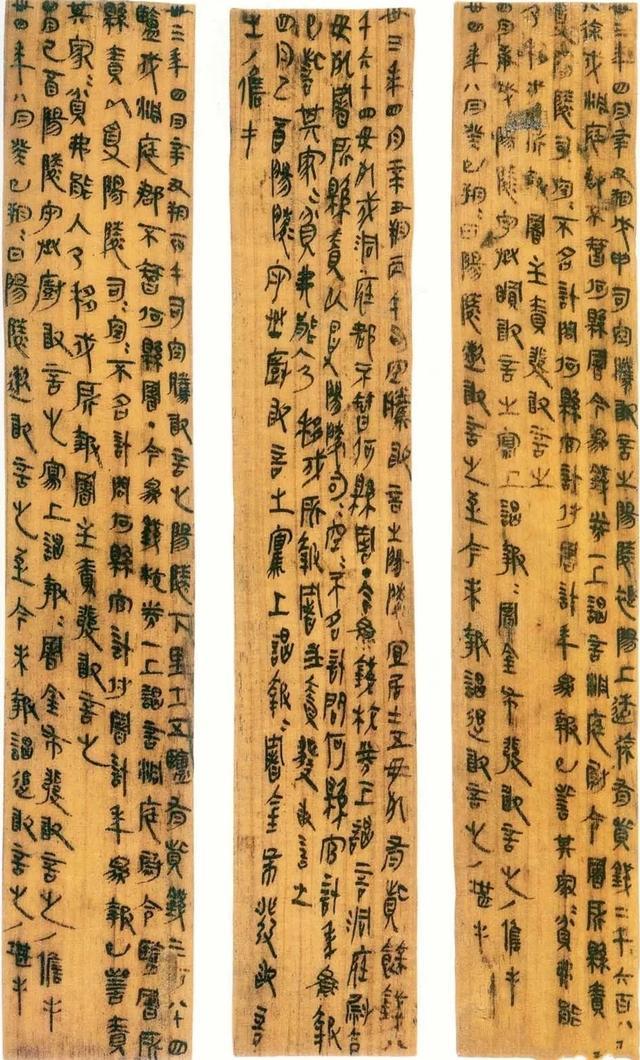 卅三年四月辛丑朔戊申司空騰敢言之陽陵褆陽上造徐有貲錢二千六百八十
徐戍洞庭郡不智何縣署今為錢校券一上謁言洞庭尉令署所縣責
以受陽陵司=空=不名計問何縣官計付署計年為報已訾其家=貧弗能
入乃移戍所報署主責發敢言之
四月陽陵守丞敢言之寫上謁報=署金布發敢言之/儋手
卅四年八月癸巳朔=日陽陵遬敢言之至今未報謁追敢言之/堪手
卅三年四月辛丑朔丙午司空騰敢言之陽陵宜居士五毋死有貲餘錢八
千六十四毋死戍洞庭郡不智何縣署·今為錢校券一上謁言洞庭尉令
毋死署所縣責以受陽陵司=空=不名計問何縣官計年為報
已訾其家=貧弗能入乃移戍所報署主責發敢言之
四月己酉陽陵守丞廚敢言之寫上謁報=署金布發敢言
之/儋手
卅三年四月辛丑朔丙午司空騰敢言之陽陵下里士五鹽有貲錢三八十四
鹽戍洞庭郡不智何縣署·今為錢校券一上謁言洞庭尉令鹽署所
縣責以受陽陵司=空=不名計問何縣官計付署計年為報已訾責
其家=貧弗能入乃移戍所報署主責發敢言之
四月己酉陽陵守丞廚敢言之寫上謁報=署金布發敢言之/儋手
卅四年八月癸巳朔=日陽陵遬敢言之至今未報謁追敢言之/堪手